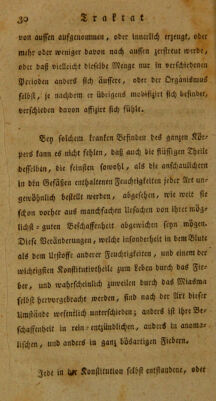 30 Traktat
von aussen aufgenommen, oder innerlich erzeugt, oder
mehr oder weniger davon nach aussen zerstreut werde,
oder daß vielleicht dieselbe Menge nur in verschiedenen
Perioden anders sich äussere, oder der Organismus
selbst, je nachdem er übrigens modifizirt sich befindet,
verschieden davon affizirt sich fühle.
Bey solchem kranken Befinden des ganzen Kör-
pers kann es nicht fehlen, daß auch die flüssigen Theile
desselben, die feinsten sowohl, als die anschaulichern
in den Gefäßen enthaltenen Feuchtigkeiten jeder Art un-
gewöhnlich bestellt werden, abgesehen, wie weit sie
schon vorher aus manchfachen Ursachen von ihrer mög-
lichst-guten Beschaffenheit abgewichen seyn mögen.
Diese Veränderungen, welche insonderheit in dem Blute
als dem Urstoffe anderer Feuchtigkeiten, und einem der
wichtigsten Konstitutivtheile zum Leben durch das Fie-
ber, und wahrscheinlich zuweilen durch das Miasma
selbst hervorgebracht werden, sind nach der Art dieser
Umstände wesentlich unterschieden; anders ist ihre Be-
schaffenheit in rein-entzündlichen, anders in anama-
lischen, und anders in ganz bösartigen Fiebern.
Jede in der Konstitution selbst entstandene, oder